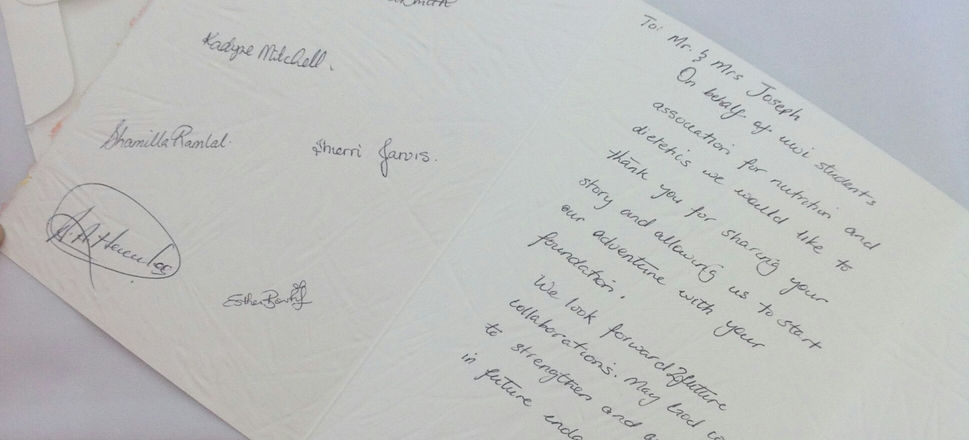 Kadyne Mitchell.
Shamilla Ramlal.
Sherri Jarvis.
Esther
To: Mr. & Mrs Joseph
On behalf of uwi students
association for nutrition and
dietetics we would like to
thank you for sharing your
story and allowing us to start
our adventure with your
foundation.
We look forward 2 future
collaborations. May God
to strengthen and
in future